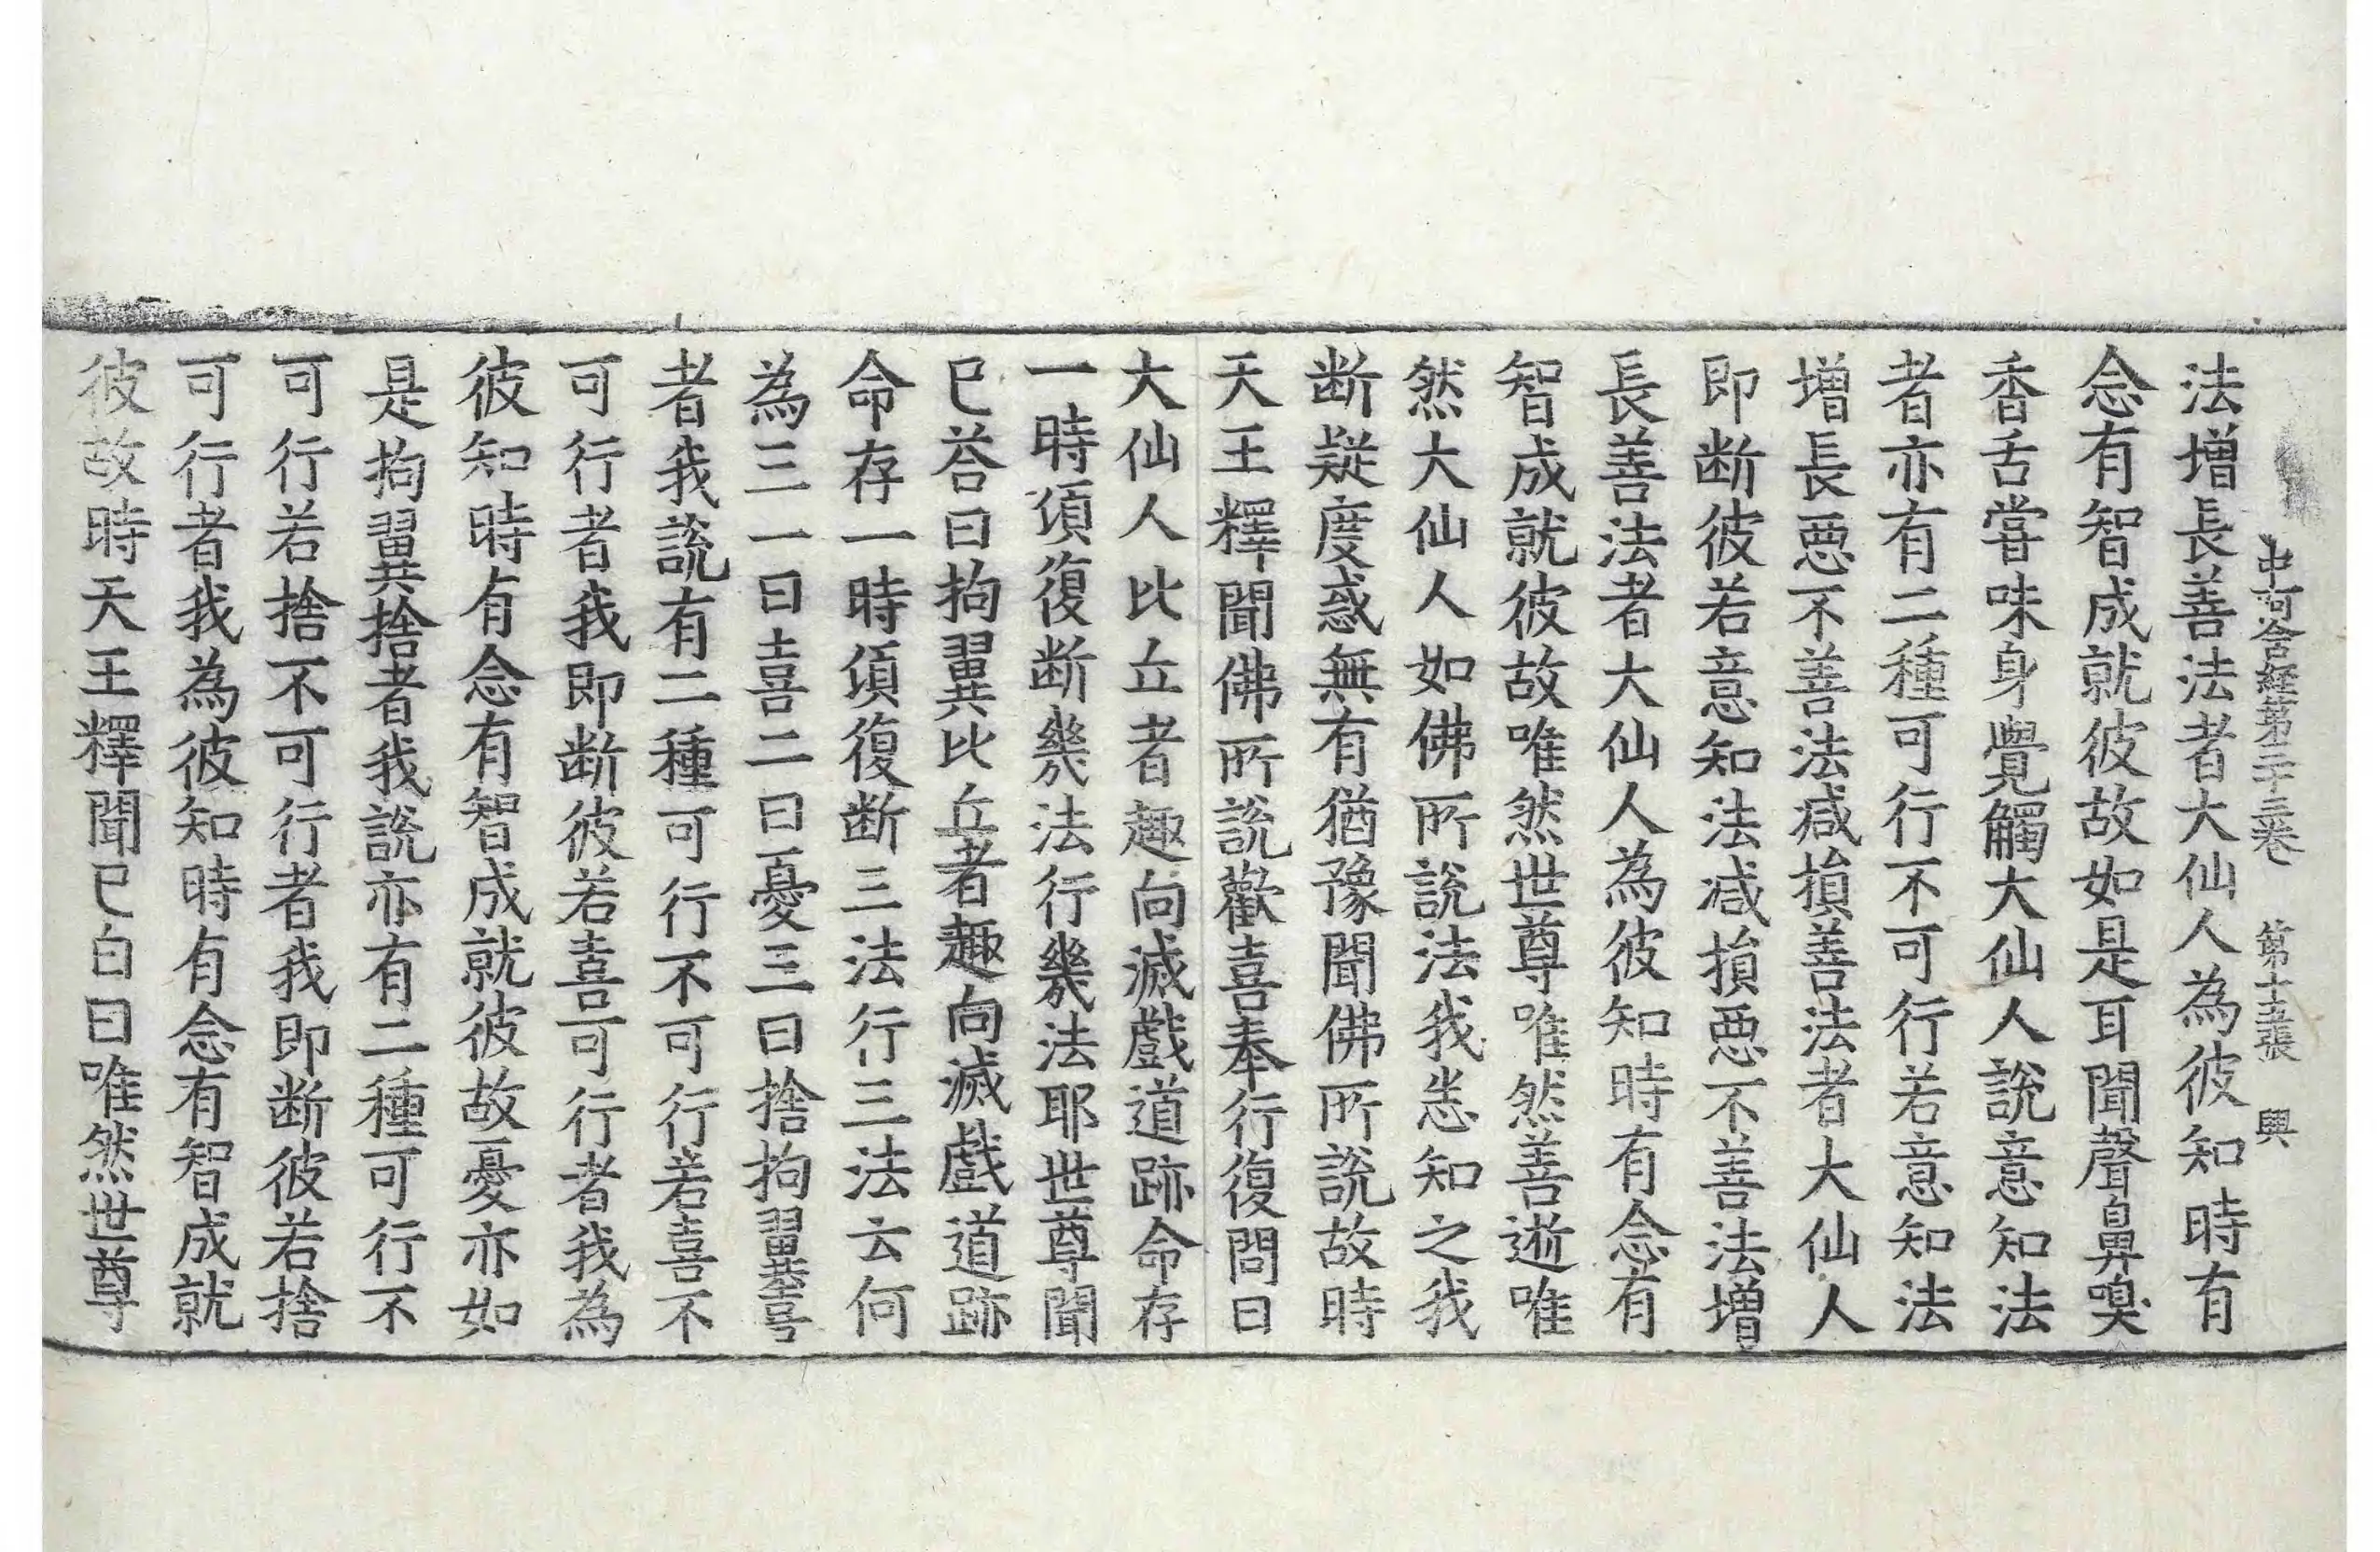 中阿含經第三十三卷 第十五張 興
法增長善法者大仙人為彼知時有
念有智成就彼故如是耳聞聲鼻嗅
香舌嘗味身覺觸大仙人說意知法
者亦有二種可行不可行若意知法
增長惡不善法減損善法者大仙人
即断彼若意知法減損惡不善法增
長善法者大仙人為彼知時有念有
智成就彼故唯然世尊唯然善逝唯
然大仙人如佛所說法我悉知之我
断疑度惑無有猶豫聞佛所說故時
天王釋聞佛所說歡喜奉行復問曰
大仙人比丘者趣向滅戲道跡命存
一時頃復断幾法行幾法耶世尊聞
已荅曰拘翼比丘者趣向滅戲道跡
命存一時頃復断三法行三法云何
為三一曰喜二曰憂三曰捨拘翼喜
者我說有二種可行不可行若喜不
可行者我即断彼若喜可行者我為
彼知時有念有智成就彼故憂亦如
是拘翼捨者我說亦有二種可行不
可行若捨不可行者我即断彼若捨
可行者我為彼知時有念有智成就
彼故時天王釋聞已白曰唯然世尊